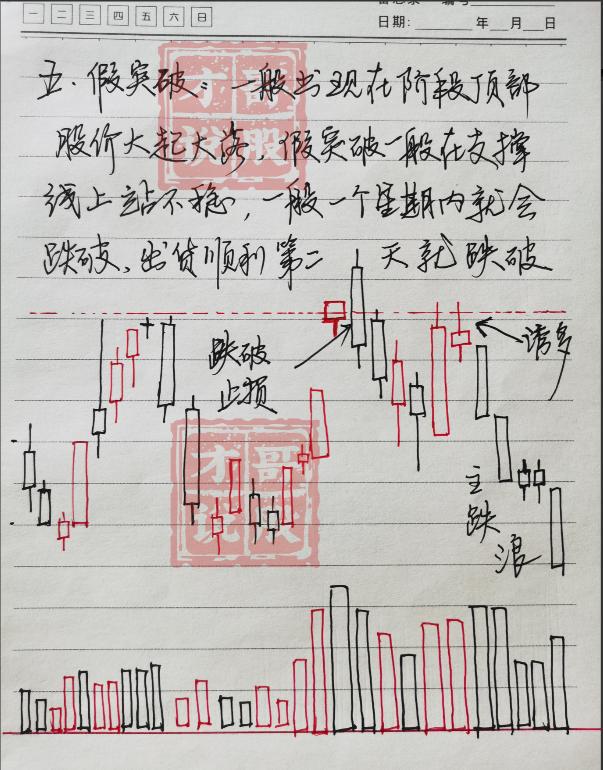 一 二 三 四 五 六 日
日期: 年 月 日
五.假突破:一般出现在阶段顶部
股价大起大落,假突破一般在支撑
线上站不稳,一般一个星期内就会
跌破,出货顺利第二 天就跌破
跌破
止损
诱多
主
跌
浪
才哥
说股
才哥
说股